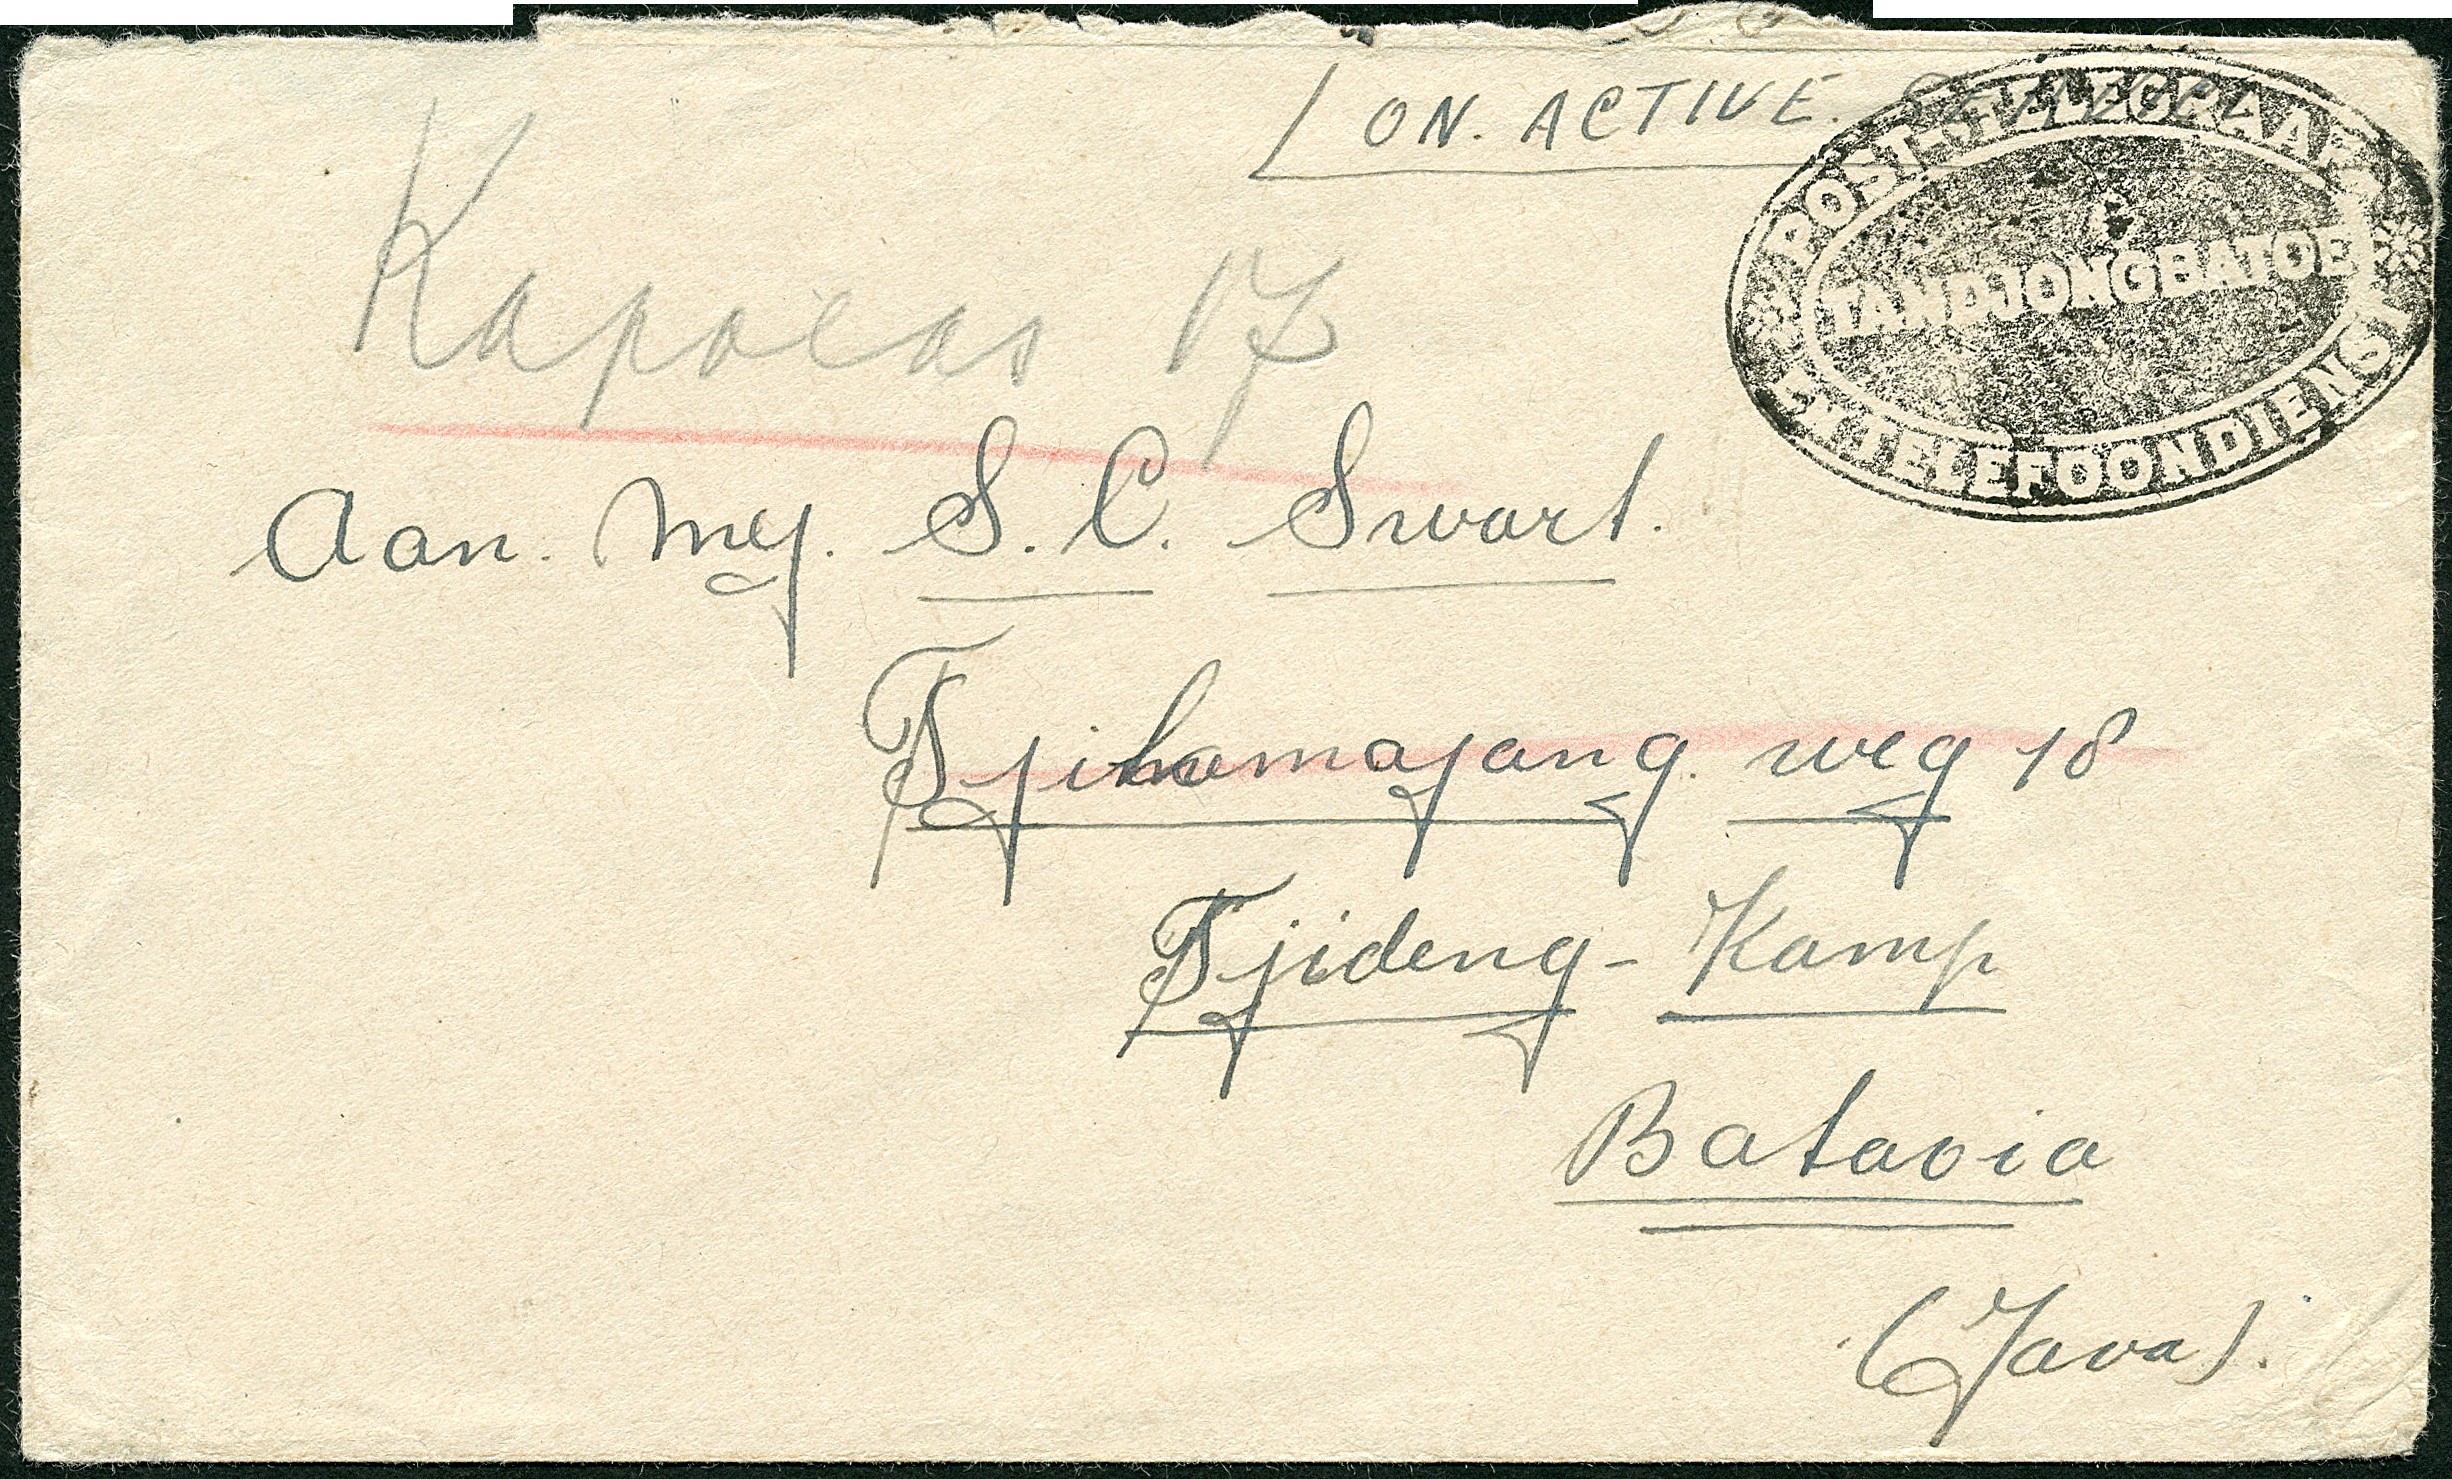 ON. ACTIVE. SERVICE
POST-, TELEGRAAF-
TANDJONGBATOE
EN TELEFOONDIENST
Kapoeas 17
Aan. Mej. S. C. Swart.
weg 18
Tjideng - Kamp
Batavia
(Java).